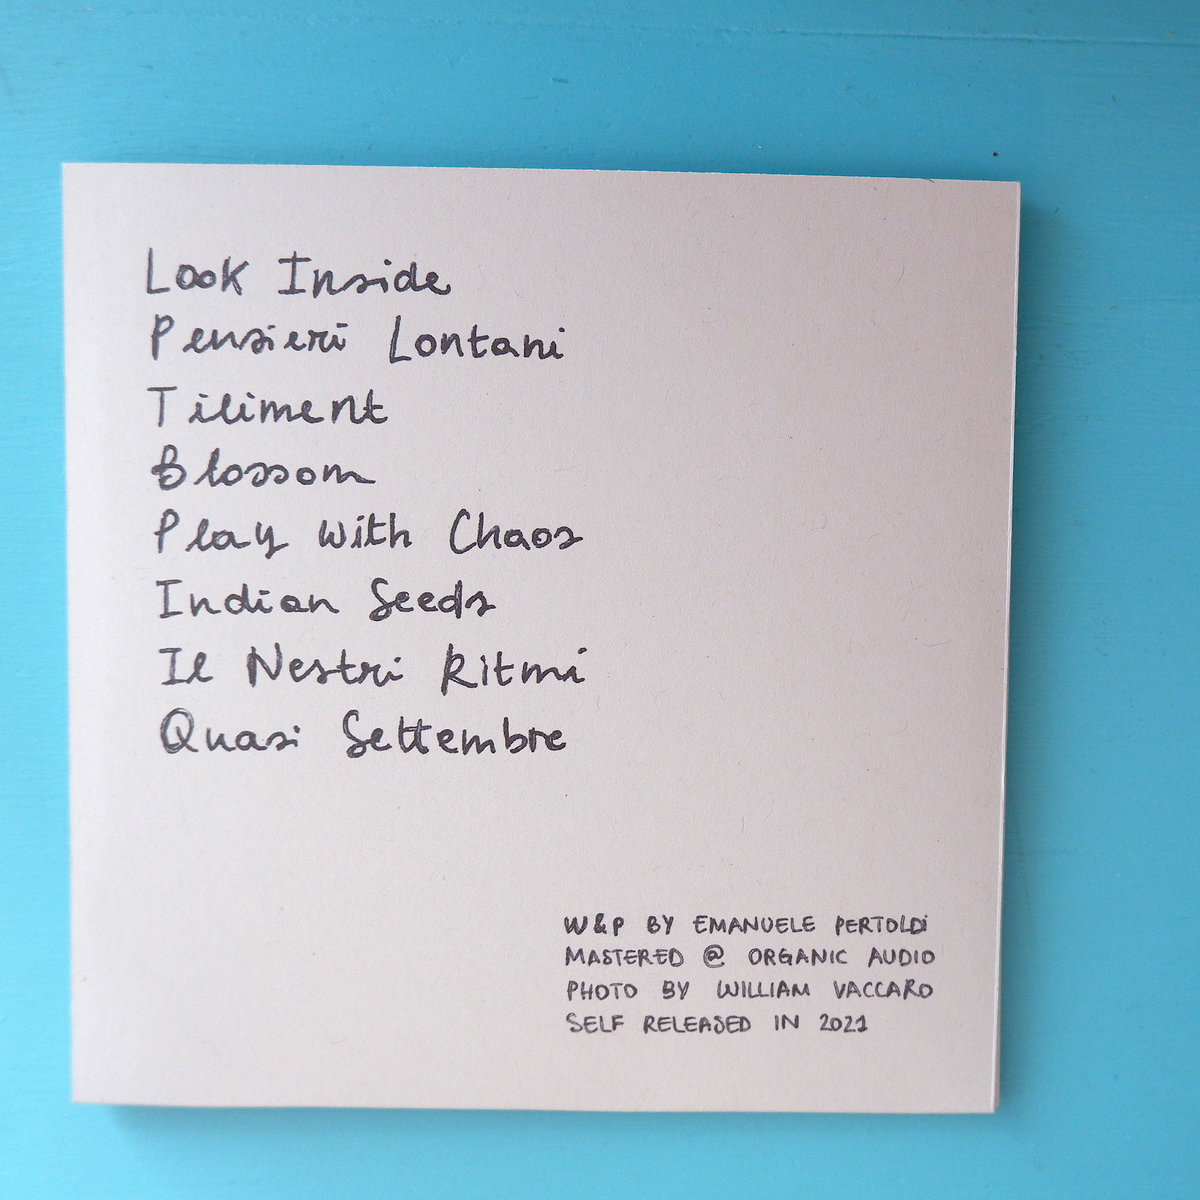 Look Inside
Pensieri Lontani
Tiliment
Blossom
Play With Chaos
Indian Seeds
Il Nestri Ritmi
Quasi Settembre
W&P BY EMANUELE PERTOLDi
MASTERED @ ORGANIC AUDIO
PHOTO BY WILLIAM VACCARO
SELF RELEASED IN 2021